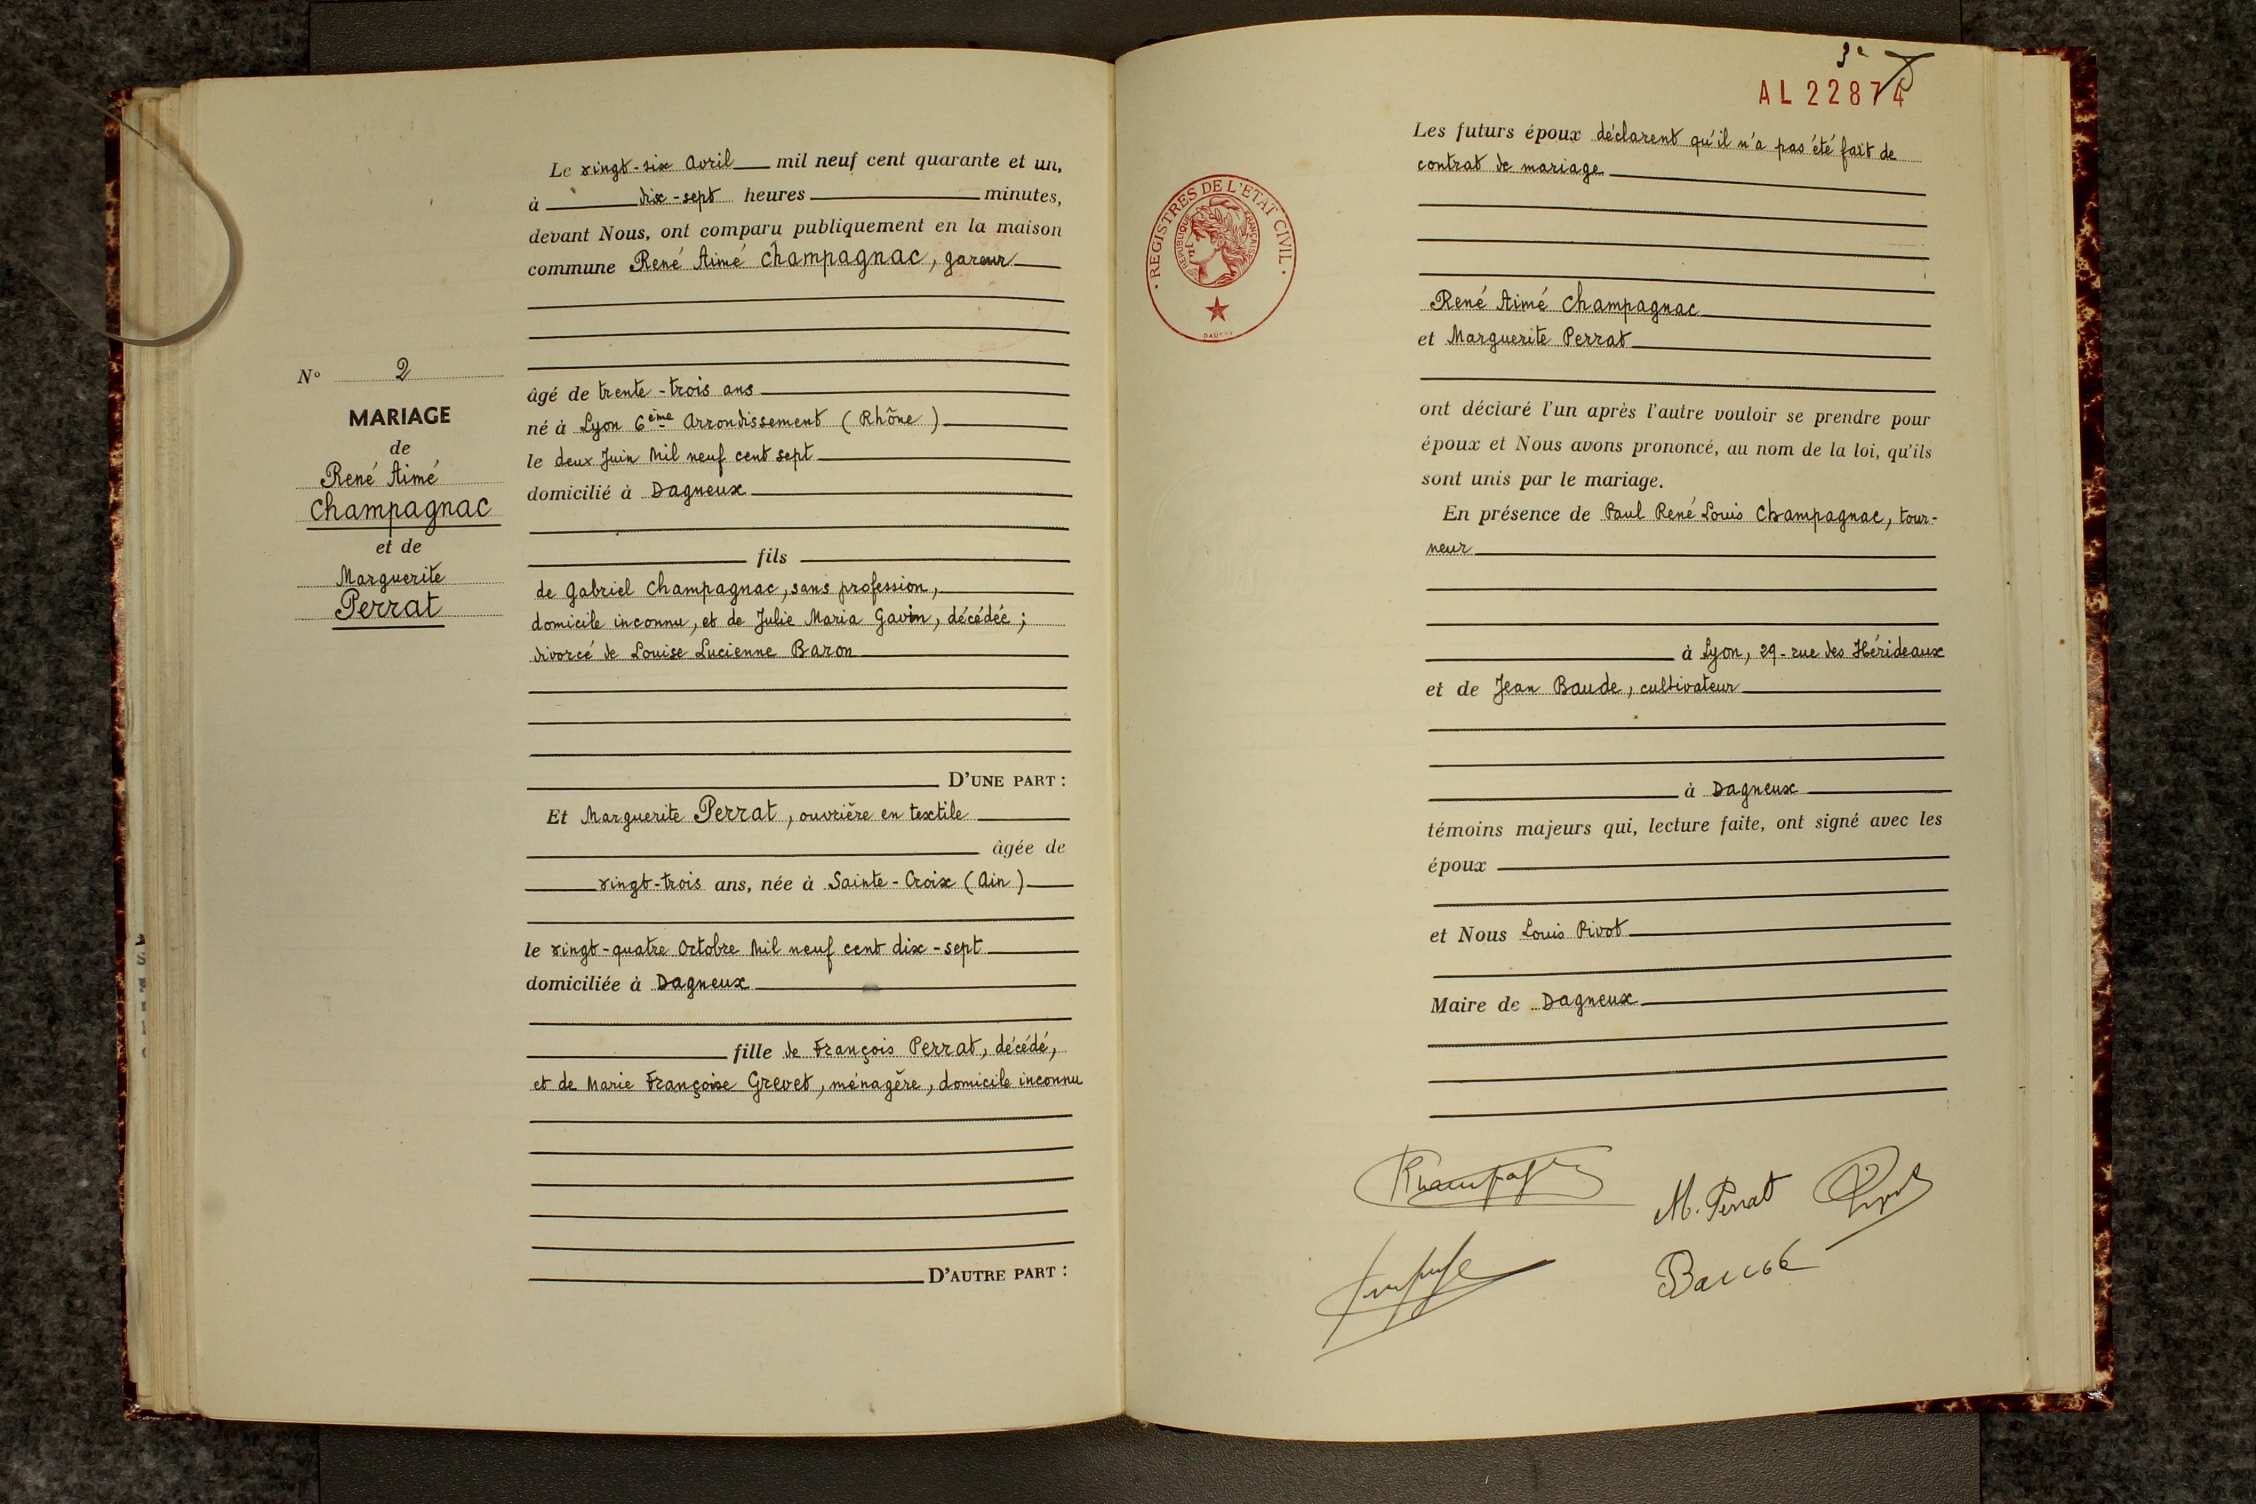 Le vingt-six Avril mil neuf cent quarante et un,
à dix-sept heures minutes,
devant Nous, ont comparu publiquement en la maison
commune René Aimé Champagnac, gareur
N° 2
MARIAGE
de
René Aimé
Champagnac
et de
Marguerite
Perrat
âgé de trente-trois ans
né à Lyon 6ème Arrondissement (Rhône)
le deux Juin Mil neuf cent sept
domicilié à Dagneux
fils
de Gabriel Champagnac, sans profession,
domicile inconnu, et de Julie Maria Gavin, décédée;
divorcé de Louise Lucienne Baron
D'UNE PART :
Et Marguerite Perrat, ouvrière en textile
âgée de
vingt-trois ans, née à Sainte-Croix (Ain)
le vingt-quatre Octobre Mil neuf cent dix-sept
domiciliée à Dagneux
fille de François Perrat, décédé,
et de Marie Françoise Grevet, ménagère, domicile inconnu
D'AUTRE PART :
AL 22874
REGISTRES DE L'ETAT CIVIL
REPUBLIQUE FRANÇAISE
Les futurs époux déclarent qu'il n'a pas été fait de
contrat de mariage
René Aimé Champagnac
et Marguerite Perrat
ont déclaré l'un après l'autre vouloir se prendre pour
époux et Nous avons prononcé, au nom de la loi, qu'ils
sont unis par le mariage.
En présence de Paul René Louis Champagnac, tour-
neur
à Lyon, 29 - rue des Hérideaux
et de Jean Baude, cultivateur
à Dagneux
témoins majeurs qui, lecture faite, ont signé avec les
époux
et Nous Louis Pivot
Maire de Dagneux
M. Perrat